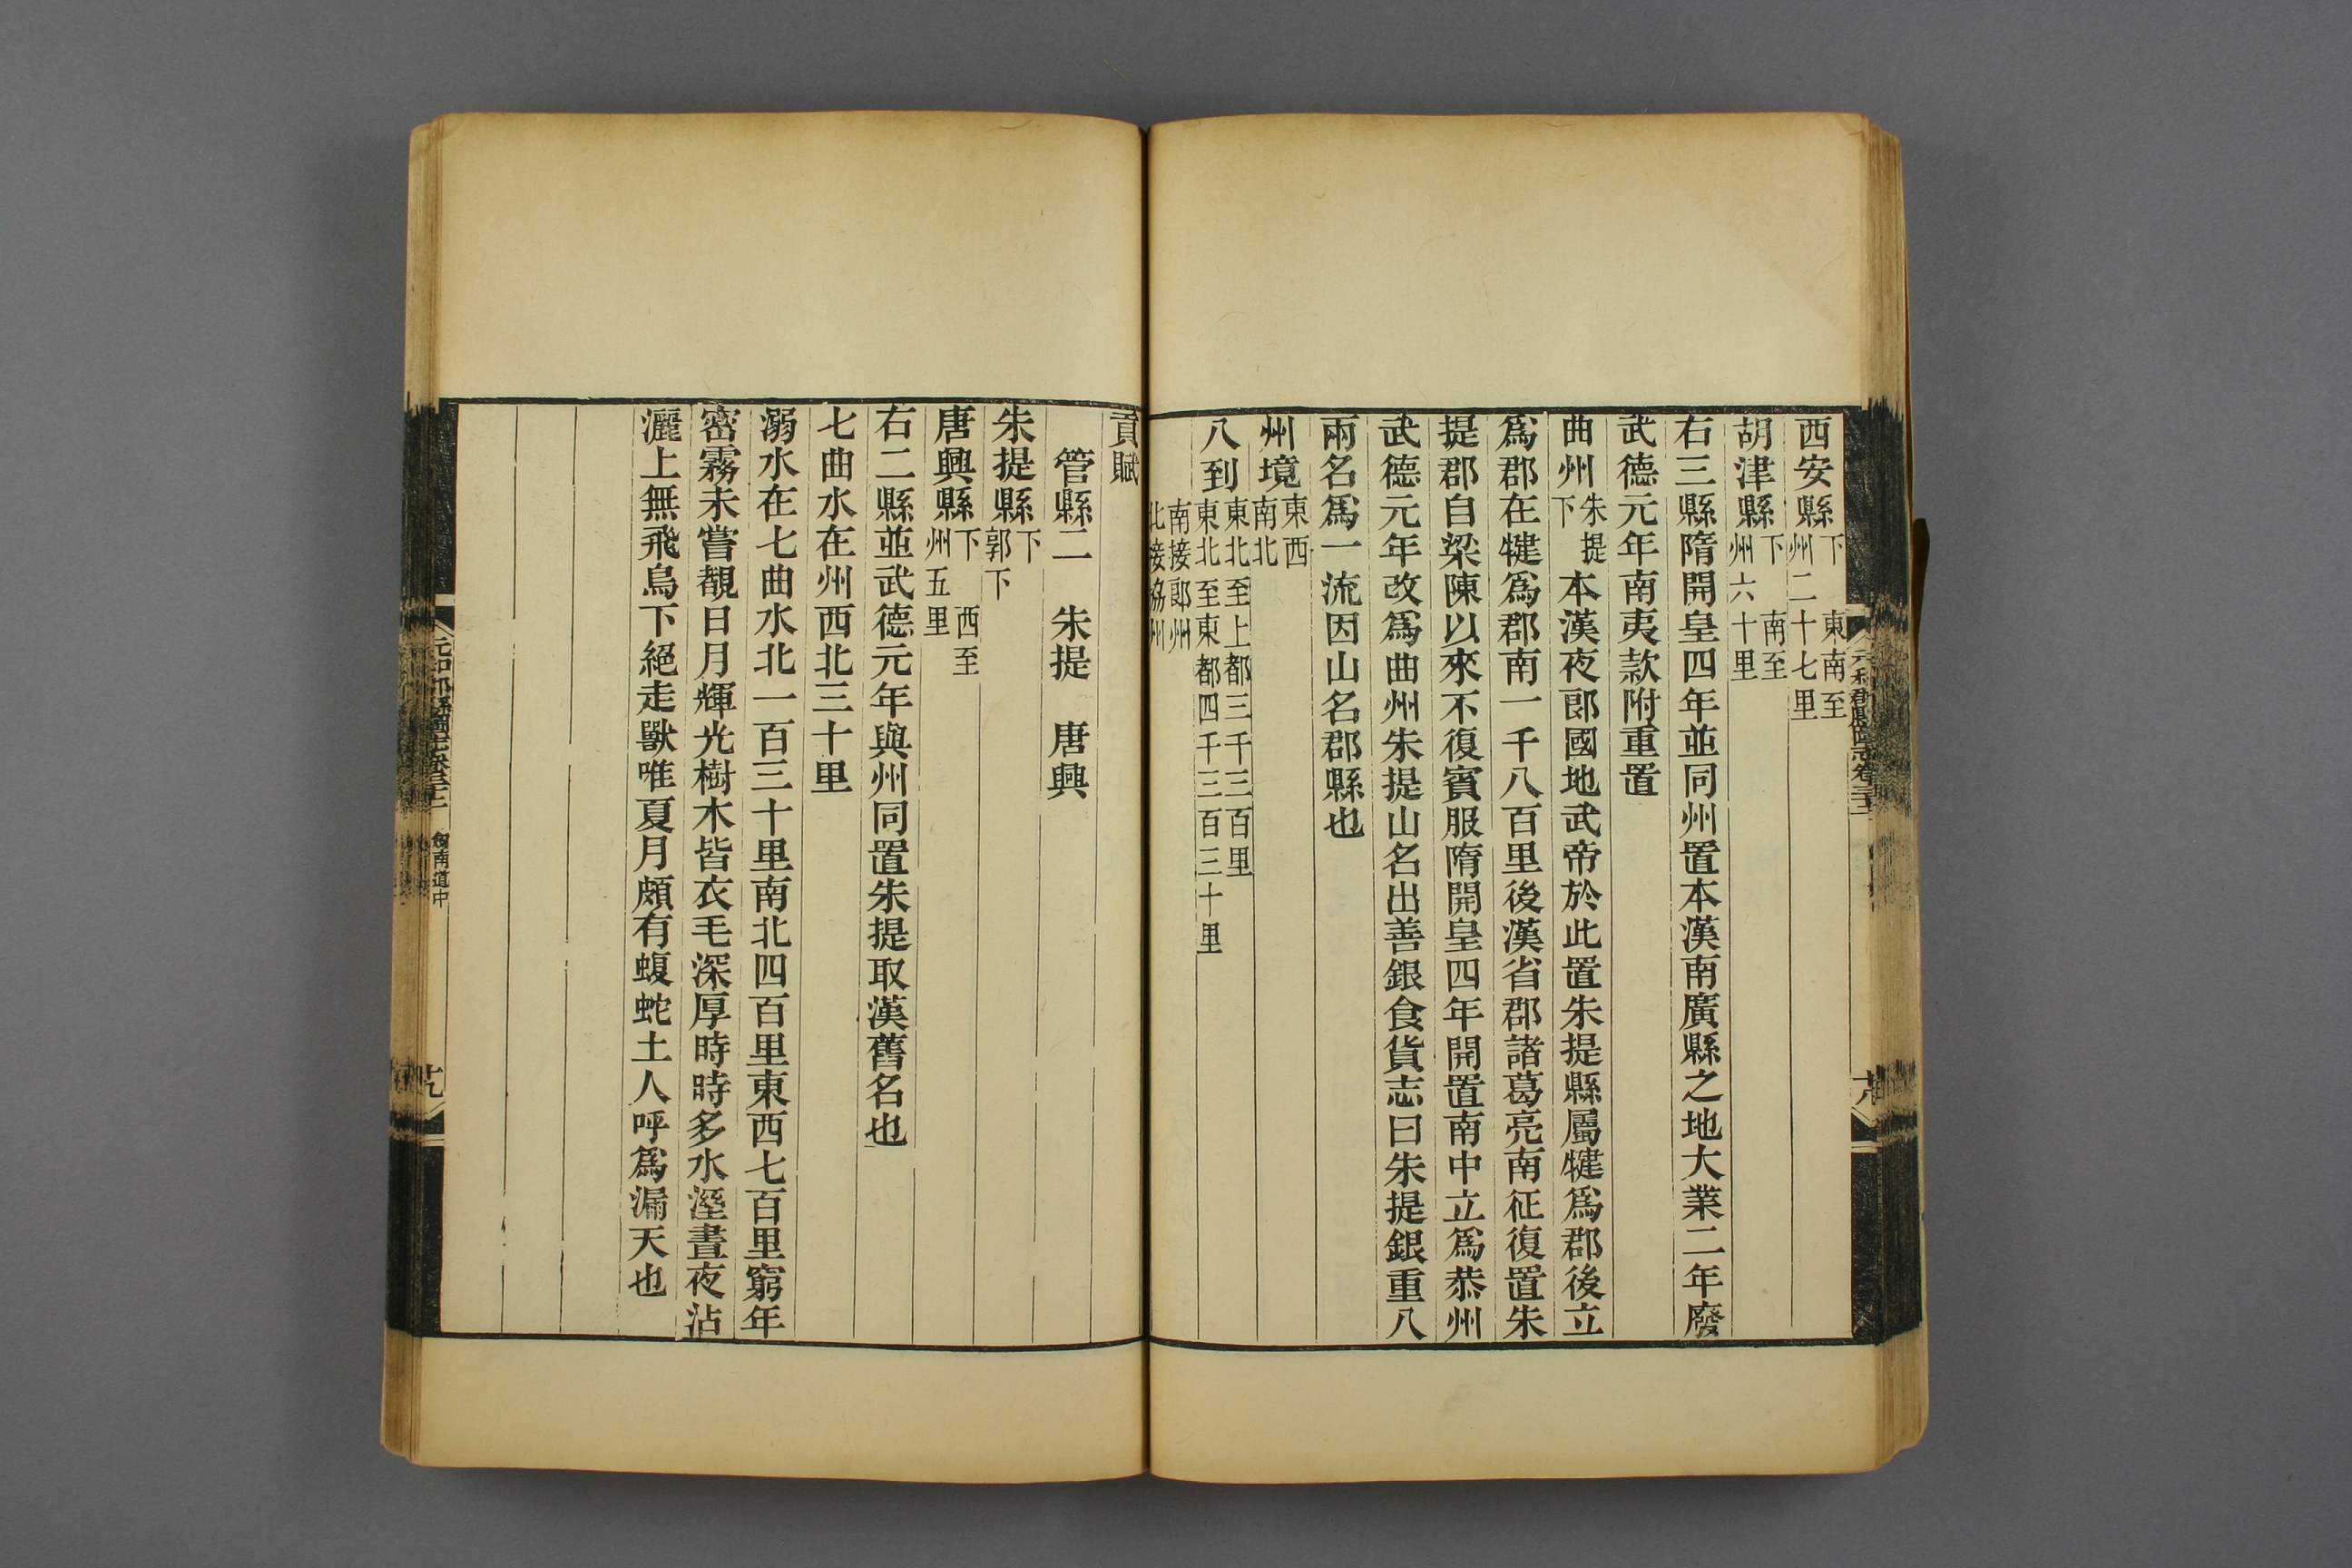 西安縣下 東南至州二十七里
胡津縣下 南至州六十里
右三縣隋開皇四年並同州置本漢南廣縣之地大業二年廢
武德元年南夷款附重置
曲州朱提下 本漢夜郎國地武帝於此置朱提縣屬犍爲郡後立
爲郡在犍爲郡南一千八百里後漢省郡諸葛亮南征復置朱
提郡自梁陳以來不復賓服隋開皇四年開置南中立爲恭州
武德元年改爲曲州朱提山名出善銀食貨志曰朱提銀重八
兩名爲一流因山名郡縣也
州境東西南北
八到東北至上都三千三百里東北至東都四千三百三十里
南接郎州北接協州
貢賦
管縣二 朱提 唐興
朱提縣下郭下
唐興縣下 西至州五里
右二縣並武德元年與州同置朱提取漢舊名也
七曲水在州西北三十里
溺水在七曲水北一百三十里南北四百里東西七百里窮年
密霧未嘗覩日月輝光樹木皆衣毛深厚時時多水溼晝夜沾
灑上無飛鳥下絕走獸唯夏月頗有蝮蛇土人呼爲漏天也
元和郡縣圖志卷三十二 劍南道中